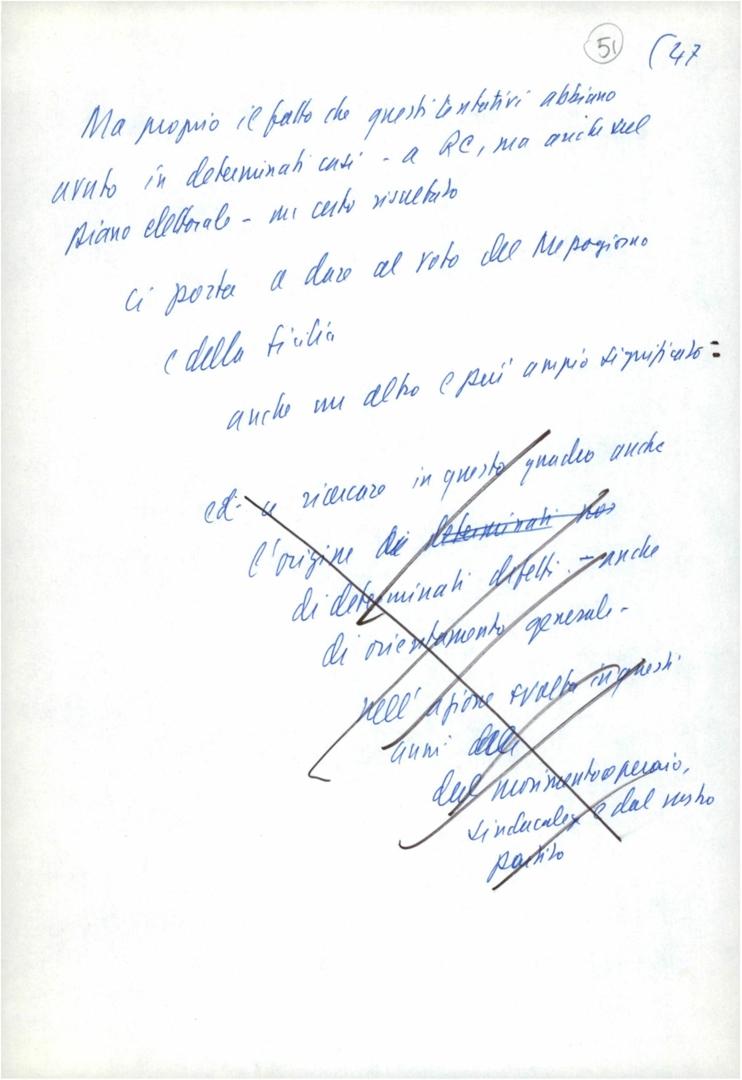 51 (47
Ma proprio il fatto che questi tentativi abbiano
avuto in determinati casi - a RC, ma anche sul
piano elettorale - un certo risultato
ci porta a dare al voto del Mezzogiorno
e della Sicilia
anche un altro e più ampio significato:
ed a ricercare in questo quadro anche
l'origine di determinati
di determinati difetti - anche
di orientamento generale -
nell'azione svolta in questi
anni dal
dal movimento operaio,
sindacale e dal nostro
partito